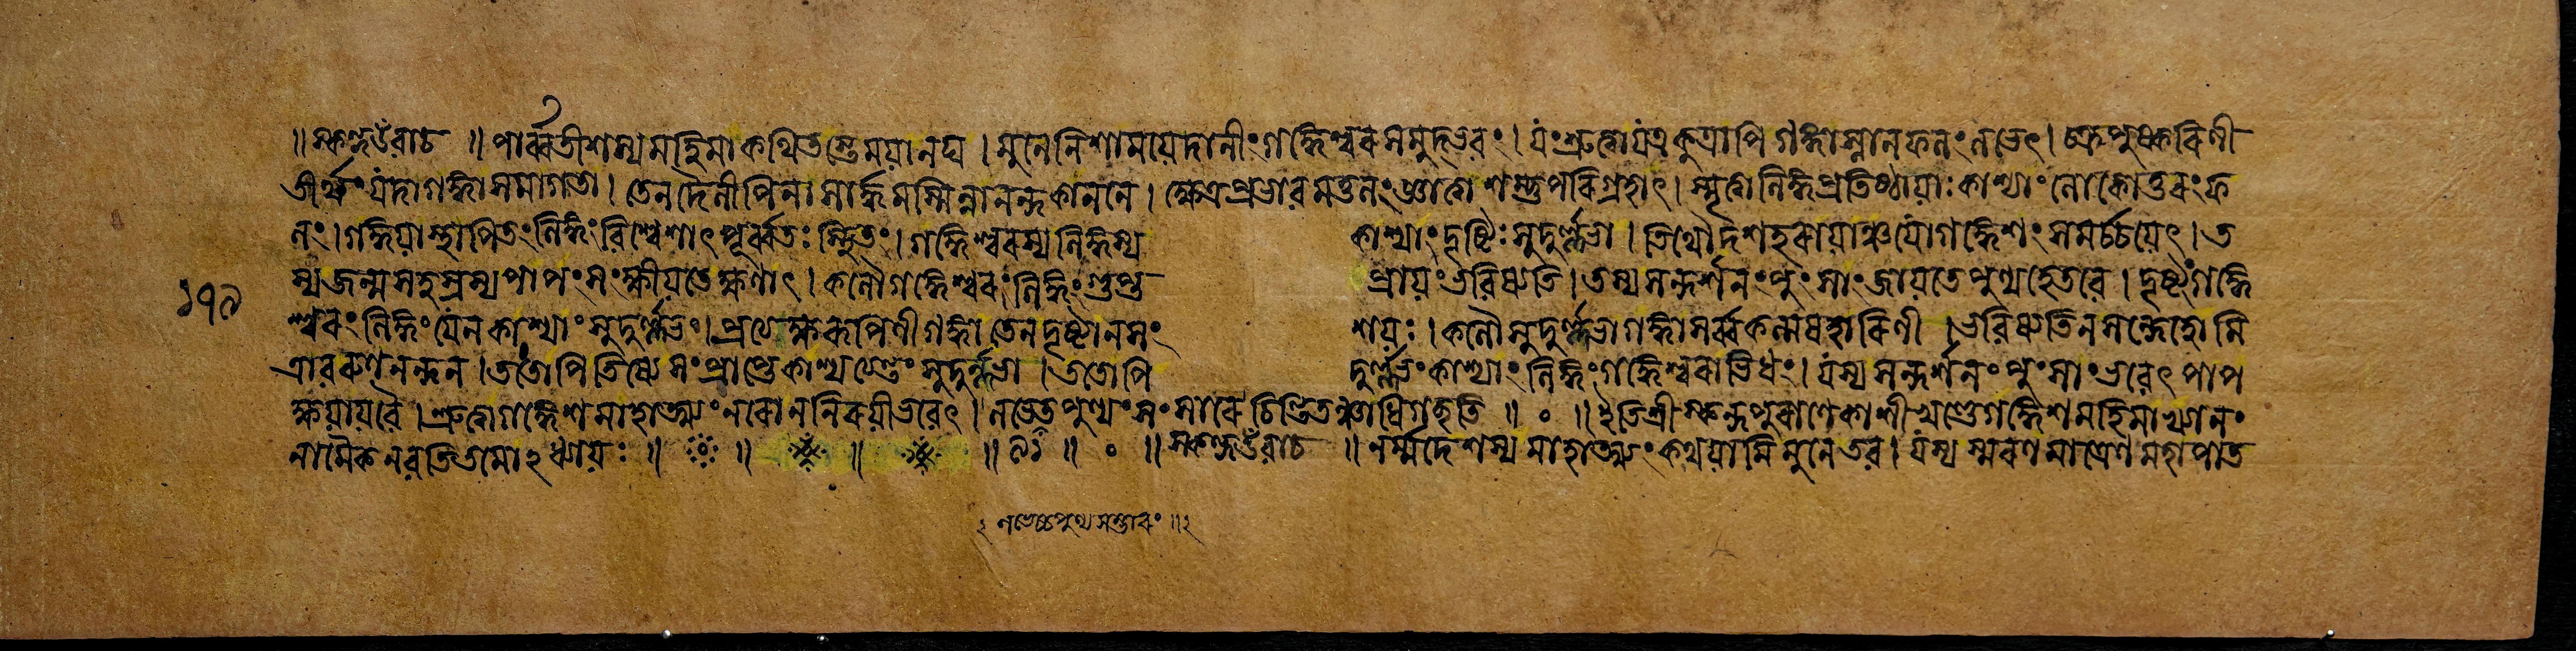 ॥ স্কন্দউঁবাচ ॥ পাৰ্ব্বতীশস্য মহিমা কথিতস্তে ময়ানঘ । মুনে নিশাময়েদানীং গঙ্গেশ্বৰসমুদ্ভবং । যং শ্রুত্বা যত্র কুত্রাপি গঙ্গাস্নানফলং লভেৎ । চক্রপুষ্কৰিণী
তীৰ্থং যদা গঙ্গা সমাগতা । তেন দৈলীপিনা সাৰ্দ্ধমস্মিন্নানন্দকাননে । ক্ষেত্রপ্রভাবমতুলং জ্ঞাত্বা শম্ভুপৰিগ্রহাৎ । স্মৃত্বা লিঙ্গপ্রতিষ্ঠায়াঃ কাশ্যাং লোকোত্তৰং ফ
লং । গঙ্গয়া স্থাপিতং লিঙ্গং বিশ্বেশাৎ পূৰ্ব্বতঃ স্থিতং । গঙ্গেশ্বৰস্য লিঙ্গস্য কাশ্যাং দৃষ্টিঃ সুদুৰ্ল্লভা । তিথৌ দশহৰায়াঞ্চ যো গঙ্গেশং সমৰ্চ্চয়েৎ । ত
স্য জন্মসহস্রস্য পাপং সংক্ষীয়তে ক্ষণাৎ । কলৌ গঙ্গেশ্বৰং লিঙ্গং গুপ্ত প্রায়ং ভবিষ্যতি । তস্য সন্দৰ্শনং পুংসাং জায়তে পুণ্যহেতবে । দৃষ্টং গঙ্গে
১৭৯ শ্বৰং লিঙ্গং যেন কাশ্যাং সুদুৰ্ল্লভং । প্রত্যেক্ষৰূপিণী গঙ্গা তেন দৃষ্টা ন সং শয়ঃ । কলৌ সুদুৰ্ল্লভা গঙ্গা সৰ্ব্বকল্মষহাৰিণী । ভবিষ্যতি ন সন্দেহো মি
ত্রাবৰুণনন্দন । ততোপি তিষ্যে সংপ্রাপ্তে কাশ্যত্যন্তং সুদুৰ্ল্লভা । ততোপি দুৰ্ল্লভং কাশ্যাং লিঙ্গং গঙ্গেশ্বৰাভিধং । যস্য সন্দৰ্শনং পুংসাং ভবেৎ পাপ
ক্ষয়ায় বৈ । শ্রুত্বা গঙ্গেশমাহাত্ম্যং নৰো ন নিৰয়ী ভবেৎ । লভেত পুণ্যং চিন্তিতঞ্চাধিগচ্ছতি ॥ ० ॥ ইতি শ্রীস্কন্দপুৰাণে কাশীখণ্ডে গঙ্গেশমহিমাখ্যানং
নামৈকনবতিতমোঽধ্যায়ঃ ॥ ॥ ॥ ॥ ৯১ ॥ ० ॥ স্কন্দউঁবাচ ॥ নৰ্ম্মদেশস্য মাহাত্ম্যং কথয়ামি মুনে তব । যস্য স্মৰণমাত্রেণ মহাপাত
লভেচ্চ পুণ্যসম্ভাৰং ॥